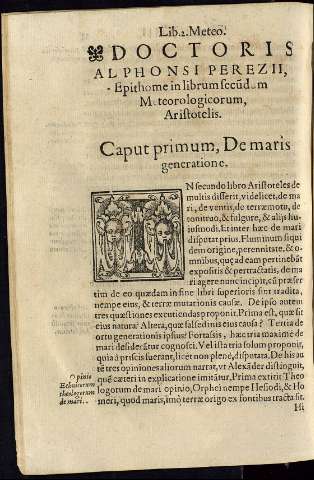 Lib.2. Meteo.
DOCTORIS
ALPHONSI PEREZII,
Epithome in librum secũdum
Meteorologicorum,
Aristotelis.
Caput primum, De maris
generatione.
IN secundo libro Aristoteles de
multis disserit, videlicet, de ma
ri, de ventis, de terræmotu, de
tonitruo, & fulgure, & alijs hu
iusmodi. Et inter hæc de mari
disputat prius. Fluminum siqui
dem origine, perennitate, & o-
mnibus, quę ad eam pertinebãt
expositis & pertractatis, de ma
ri agere nunc incipit, cũ præser
tim de eo quædam in fine libri superioris sint tradita,
nempe eius, & terræ mutationis causæ. De ipso autem
tres quæstiones excutiendas proponit. Prima est, quæ sit
eius natura? Altera, quæ falsedinis eius causa? Tertia de
ortu generationis ipsius? Fortassis, hæc tria maxime de
mari desiderãtur cognosci. Vel ista tria solum proponit,
quia à priscis fuerant, licet non plenè, disputata. De his au
tē tres opiniones aliorum narrat, vt Alexãder distinguit,
quē cæteri in explicatione imitãtur. Prima extitit Theo
logotum de mari opinio, Orphei nempe Hesiodi, & Ho
meri, quod maris, imò terræ origo ex fontibus tracta sit.
Opinio
Ethnicorum
theologorum
de mari.
Hi